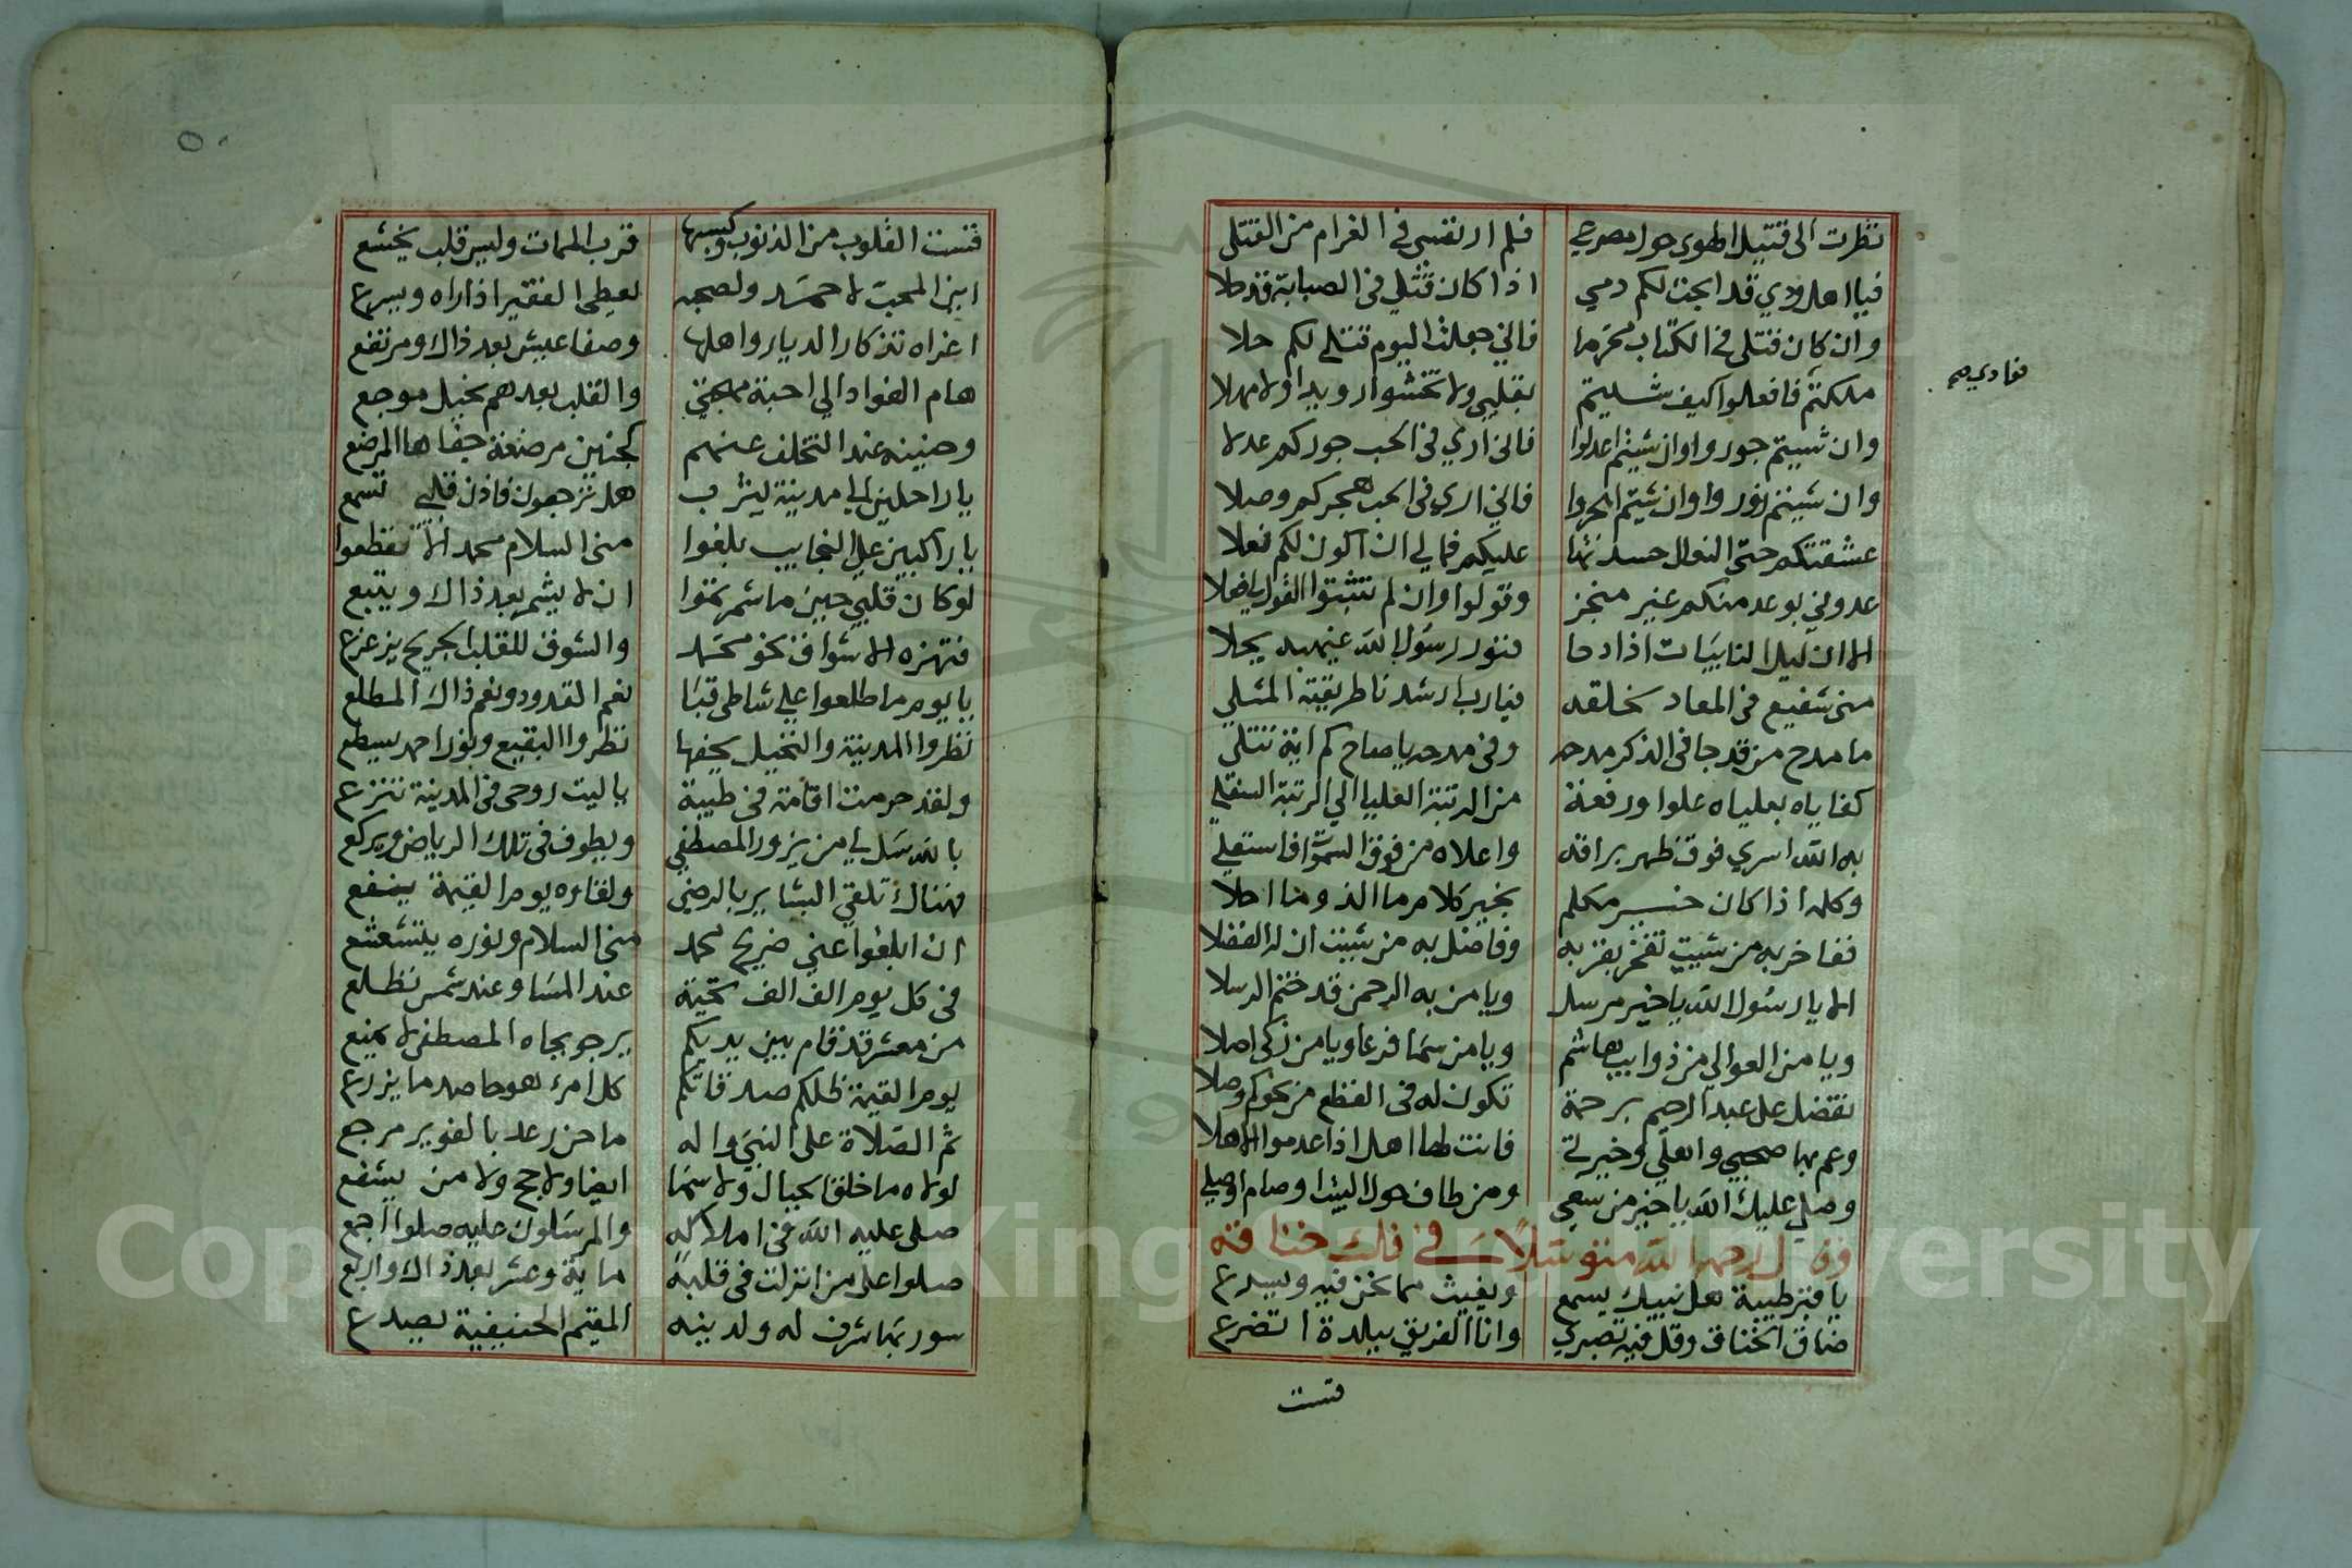 نظرت الى قتيل الهوى حول مصرعي فلم ار نفسي في الغرام من القتلى
فيا اهل ودي قد ابحت لكم دمي اذا كان قتلي في الصبابة قد حلا
وان كان قتلي في الكتاب محرما فاني جعلت اليوم قتلي لكم حلا
فؤادي صح
ملكتم فافعلوا كيف شيتم بقلبي ولا تخشوا رويدا ولا مهلا
وان شيتم جوروا وان شيتم اعدلوا فاني اري في الحب جوركم عدلا
وان شيتم زوروا وان شيتم اهجروا فاني اري في الحب هجركم وصلا
عشقتكم حتى النعال حسدتها عليكم فمالي ان اكون لكم نعلا
عدوني بوعد منكم غير منجز وقولوا وان لم تثبتوا القول يا فعلا
الا ان ليل النايبات اذا دجا فنور رسول الله غيهبه يجلا
متى شفيع في المعاد بخلقه فيارب ارشدنا طريقته المثلي
ما مدح من قد جا في الذكر مدحه وفي مدحه يا صاح كم اية تتلى
كفا ياه بعلياه علوا ورفعة من الرتبة العليا الي الرتبة السفلي
به الله اسري فوق ظهر براقه واعلاه من فوق السموا فاستعلي
وكله اذا كان خير مكلم بخير كلام ما الذ وما احلا
ففاخر به من شيت تفخر بفخر به وفاضل به من شيت ان له الفضلا
الا يا رسول الله يا خير مرسل ويا من به الرحمن قد ختم الرسلا
ويا من العوالي من ذوايب هاشم ويا من سما فرعا ويا من زكى اصلا
تفضل على عبد الرحيم برحمة تكون له في القطع من نحوكم وصلا
وعم بها صحبي واهلي وخيرتي فانت لها اهلا اذا عدموا الاهلا
وصلي عليك الله يا خير من سعي ومن طاف حول البيت او صام او صلي
وقال الرحمه الله متوسلا في فك خناقه
يا قبر طيبة هل نبيك يسمع ويغيث مما نحن فيه ويسرع
ضاق الخناق وقل فيه تصبري وانا الغريق ببلدة اتضرع
قست
٥٠
قست القلوب من الذنوب وكسبها قرب الممات وليس قلب يخشع
اين المحب لاحمد ولصحبه يعطي الفقير اذا راه ويسرع
اغراه تذكار الديار واهلها وصفا عيش بعد ذاك ومرتفع
هام الفواد الي احبة مهجتي والقلب بعدهم بخيل موجع
وحنينه عند التخلف عنهم كحنين مرضعة جفاها المرضع
يا راحلين الى مدينة يثرب هل ترجعون فاذن قلبي تسمع
يا راكبين علي النجايب بلغوا مني السلام محمد الا تقطعوا
لو كان قلبي حين ما شمر تموا ان لا يشم بعد ذاك ويتبع
فتهزه الاشواق نحو محمد والشوق للقلب الجريح يزعزع
يا يوم ما طلعوا علي شاطي قبا نعم القدود ونعم ذاك المطلع
نظروا المدينة والنخيل يحفها نظروا البقيع ونور احمد يسطع
ولقد حرمت اقامة في طيبة يا ليت روحي في المدينة تنزع
بالله سل لي من يزور المصطفي ويطوف في تلك الرياض ويركع
فهناك تلقي البشاير بالرضي ولقاءه يوم القيمة ينفع
ان ابلغوا عني ضريح محمد مني السلام ونوره يتشعشع
في كل يوم الف الف تحية عند المسا وعند شمس تطلع
من معشر قد قام بين يديكم يرجو بجاه المصطفى لا يمنع
يوم القيمة ظلكم صدقاتكم كل امرء هو حاصد ما يزرع
ثم الصلاة على النبي واله ما حن رعد بالغوير مرجع
لولاه ما خلق الجبال ولا سما ايضا ولا حج ولا من يشفع
صلى عليه الله في املاكه والمرسلون عليه صلوا اجمع
صلوا على من انزلت في قلبه ماية وعشر بعد ذاك واربع
سور بها شرف له ولدينه المقيم الحنيفية يصدع